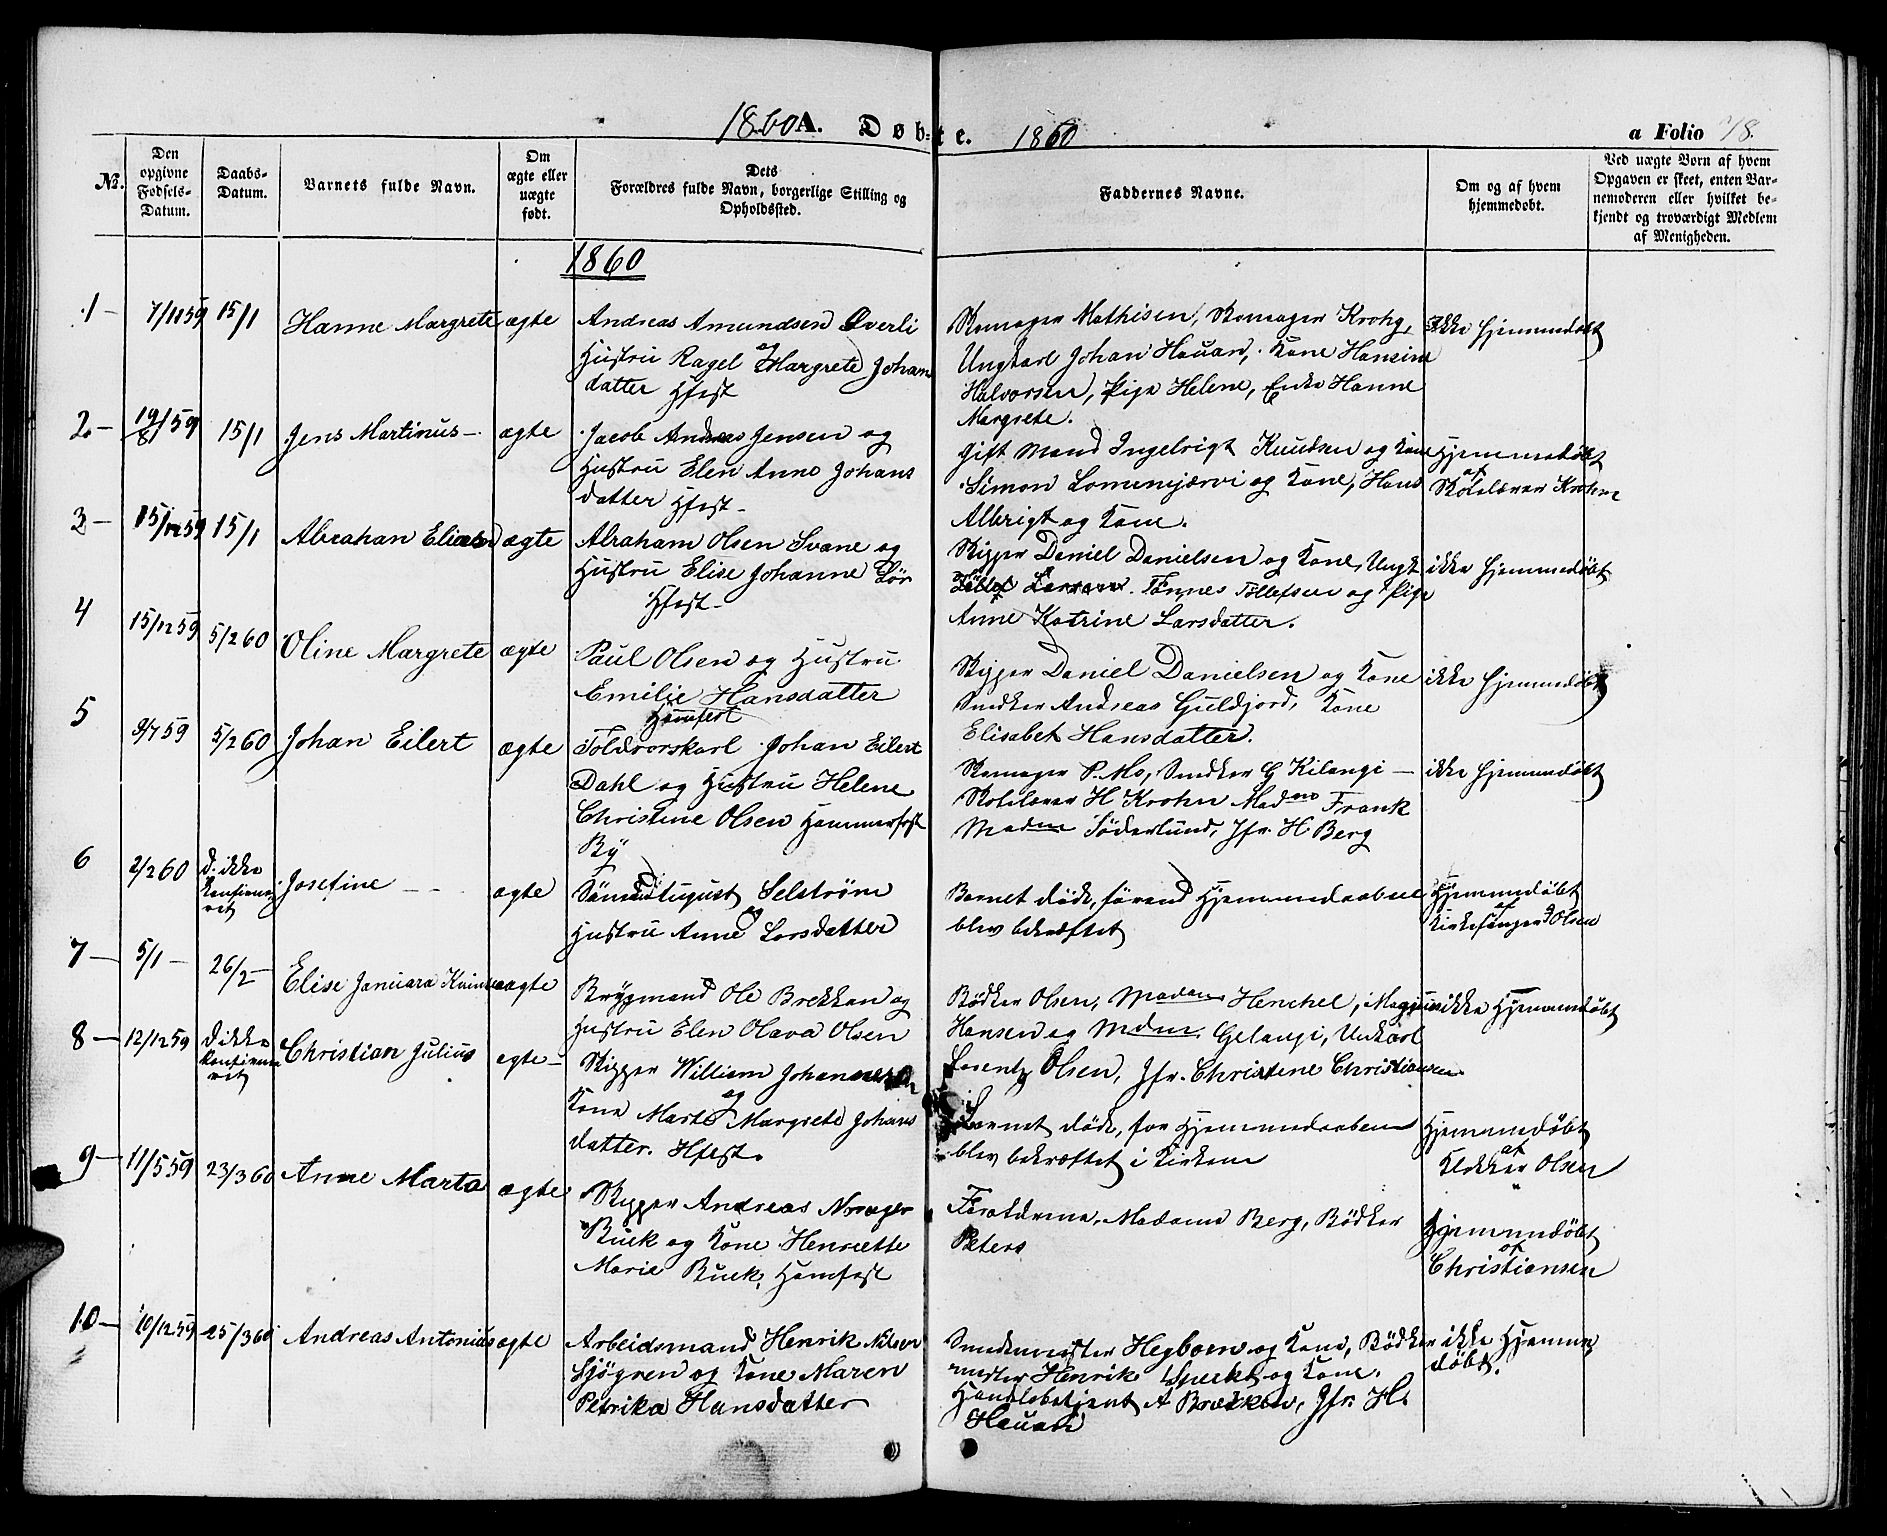 1860 A. Døbte. 1860 a Folio 78.
No. Den opgivne Fødsels-Datum. Daabs-Datum. Barnets fulde Navn. Om ægte eller uægte født. Dets Forældres fulde Navn, borgerlige Stilling og Opholdssted. Faddernes Navne. Om og af hvem hjemmedøbt. Ved uægte Børn af hvem Opgaven er skeet, enten Barnemoderen eller hvilket bekjendt og troværdigt Medlem af Menigheden.
1860
1 – 7/11 59 15/1 Hanne Margrete ægte Andreas Amundsen Øverli
Hustru Ragel Margrete Johans
datter Hfest
Skomager Mathisen, Skomager Krohg,
Ungkarl Johan Hauan, Kone Hansine
Halvorsen, Pige Helene, Enke Hanne
Margrete.
Ikke hjemmedøbt
2 – 19/8 59 15/1 Jens Martinus – ægte Jacob Andreas Jensen og
Hustru Elen Anna Johans
datter Hfest –
Gift Mand Ingebrigt Knudsen og Kone
Simon Lomenjærvi og Kone, Hans
Albrigt og Kone.
Hjemmedøbt
af
Skolelærer Krohn
3 – 15/12 59 15/1 Abraham Elias ægte Abraham Olsen Svane og
Hustru Elise Johanne
Hfest –
Skipper Daniel Danielsen og Kone, Ungk
Tönnes Tollefsen og Pige
Anne Katrine Larsdatter.
ikke hjemmedøbt
4 15/12 59 5/2 60 Oline Margrete ægte Paul Olsen og Hustru
Emilie Hansdatter
Hamfest
Skipper Daniel Danielsen og Kone
Snedker Andreas Guldjord, Kone
Elisabet Hansdatter.
ikke hjemmedøbt
5 9/7 59 5/2 60 Johan Eilert ægte Toldrorskarl Johan Eilert
Dahl og Hustru Helene
Christine Olsen Hammerfest
By
Skomager P. Mo, Snedker G Kilangi –
Skolelærer H Krohn Madme Frank
Madme Söderlund, Jfr. H Berg
ikke hjemmedøbt
6 2/2 60 d. ikke
Konfirme-
ret
Josefine – – ægte Sömand August Selström
og
Hustru Anne Larsdatter
Barnet döde, förend Hjemmedaaben
blev bekræftet
Hjemmedøbt
af
Kirkesanger Olsen
7 – 5/1 – 26/2 – Elise Januara ægte Brygmand Ole Brekken og
Hustru Elen Olava Olsen
Bödker Olsen, Madam Henchel,
Hansen og Mdme Gelangi, Unkarl
Lorentz Olsen, Jfr. Christine Christiansen
ikke Hjemmedøbt
8 – 12/12 59 d ikke
Konfirme
ret
Christian Julius egte – Skipper William Johannesen
og
Kone Marte Margrete Johans
datter. Hfest.
Barnet döde, før Hjemmedaaben
blev bekræftet i Kirken
Hjemmedøbt
af
Klokker Olsen
9 – 11/5 59 23/3 60 Anne Marta ægte Skipper Andreas
Buck og Kone Henriette
Marie Buck, Hamfest
Forældrene, Madame Berg, Bödker
Peters
Hjemmedøbt
af
Christiansen
10 – 10/12 59 25/3 60 Andreas Antonius ægte Arbeidsmand Henrik Nilsen
Sjögren og Kone Maren
Petrika Hansdatter
Smedemester Hegboen og Kone, Bödker
mester Henrik og Kone.
Handelsbetjent A Brækken, Jfr. H.
Hauan
ikke Hjemme
døbt.